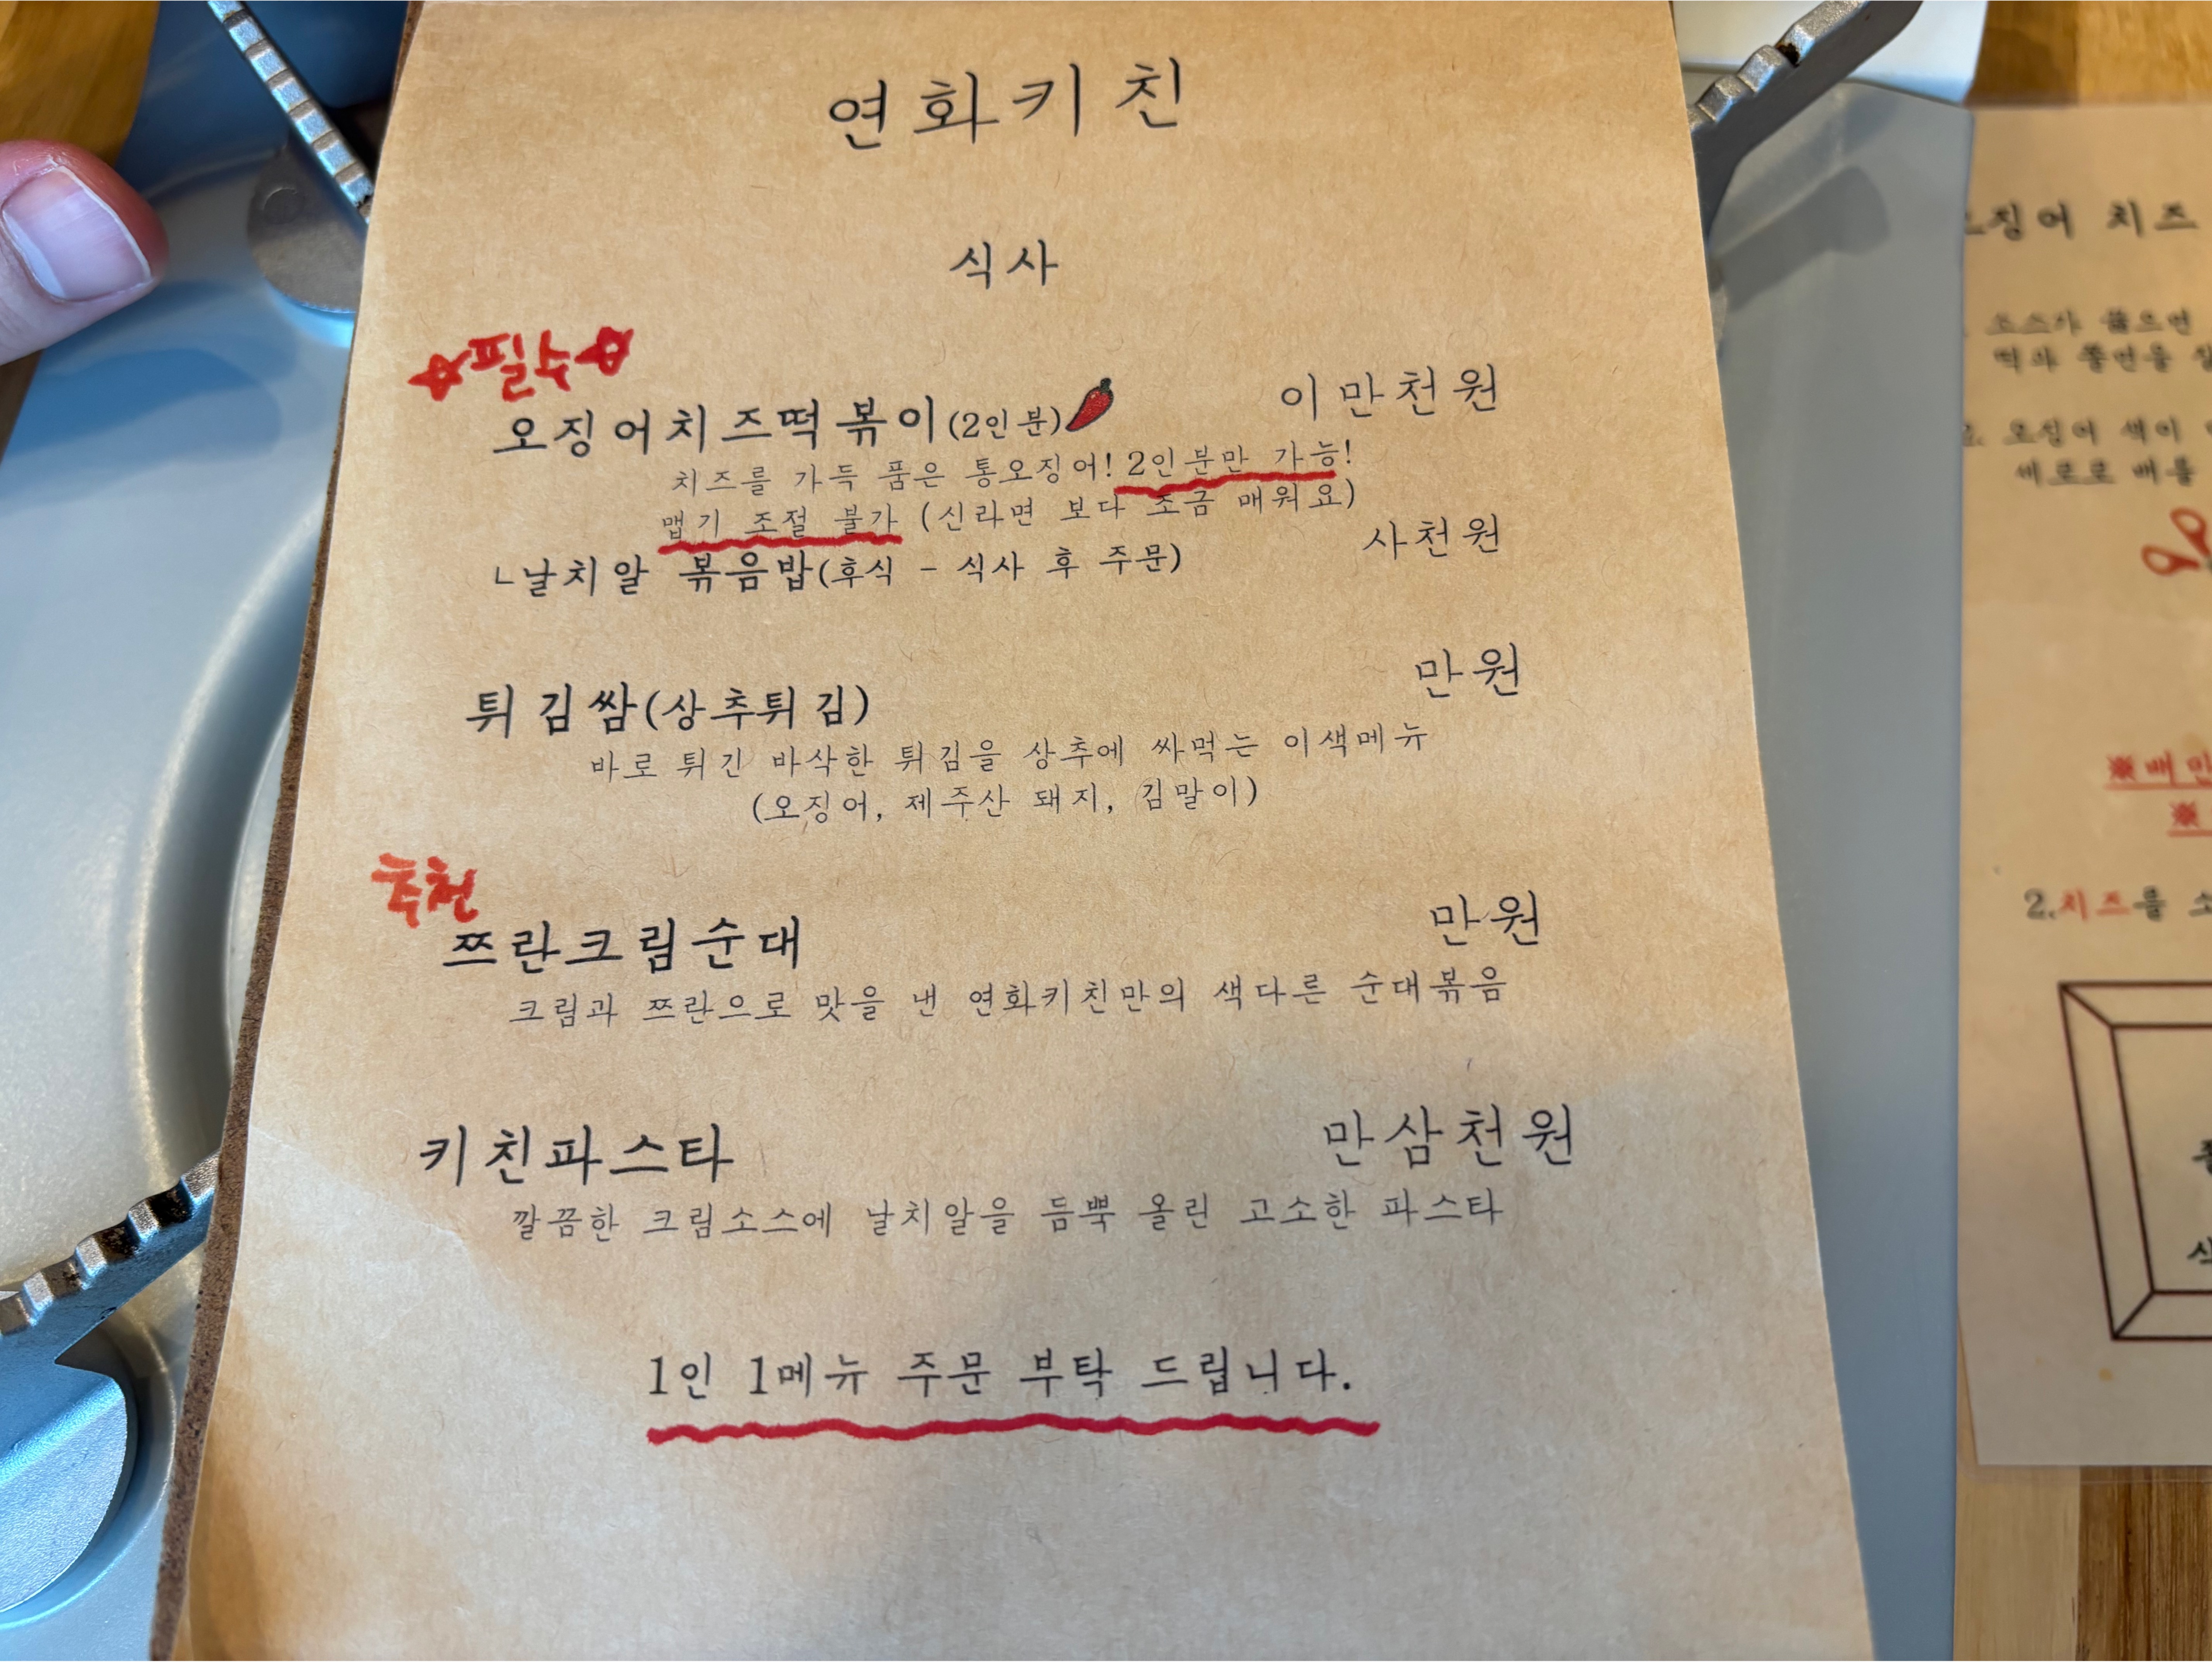 연화키친
식사
☆필수☆
오징어치즈떡볶이(2인분) 이만천원
치즈를 가득 품은 통오징어! 2인분만 가능!
맵기 조절 불가 (신라면 보다 조금 매워요)
ㄴ날치알 볶음밥(후식 - 식사 후 주문) 사천원
튀김쌈(상추튀김) 만원
바로 튀긴 바삭한 튀김을 상추에 싸먹는 이색메뉴
(오징어, 제주산 돼지, 김말이)
추천
쯔란크림순대 만원
크림과 쯔란으로 맛을 낸 연화키친만의 색다른 순대볶음
키친파스타 만삼천원
깔끔한 크림소스에 날치알을 듬뿍 올린 고소한 파스타
1인 1메뉴 주문 부탁 드립니다.
오징어 치즈
소스가 끓으면
떡과 쫄면을
2. 오징어 색이
세로로 배를
※
2.치즈를 소